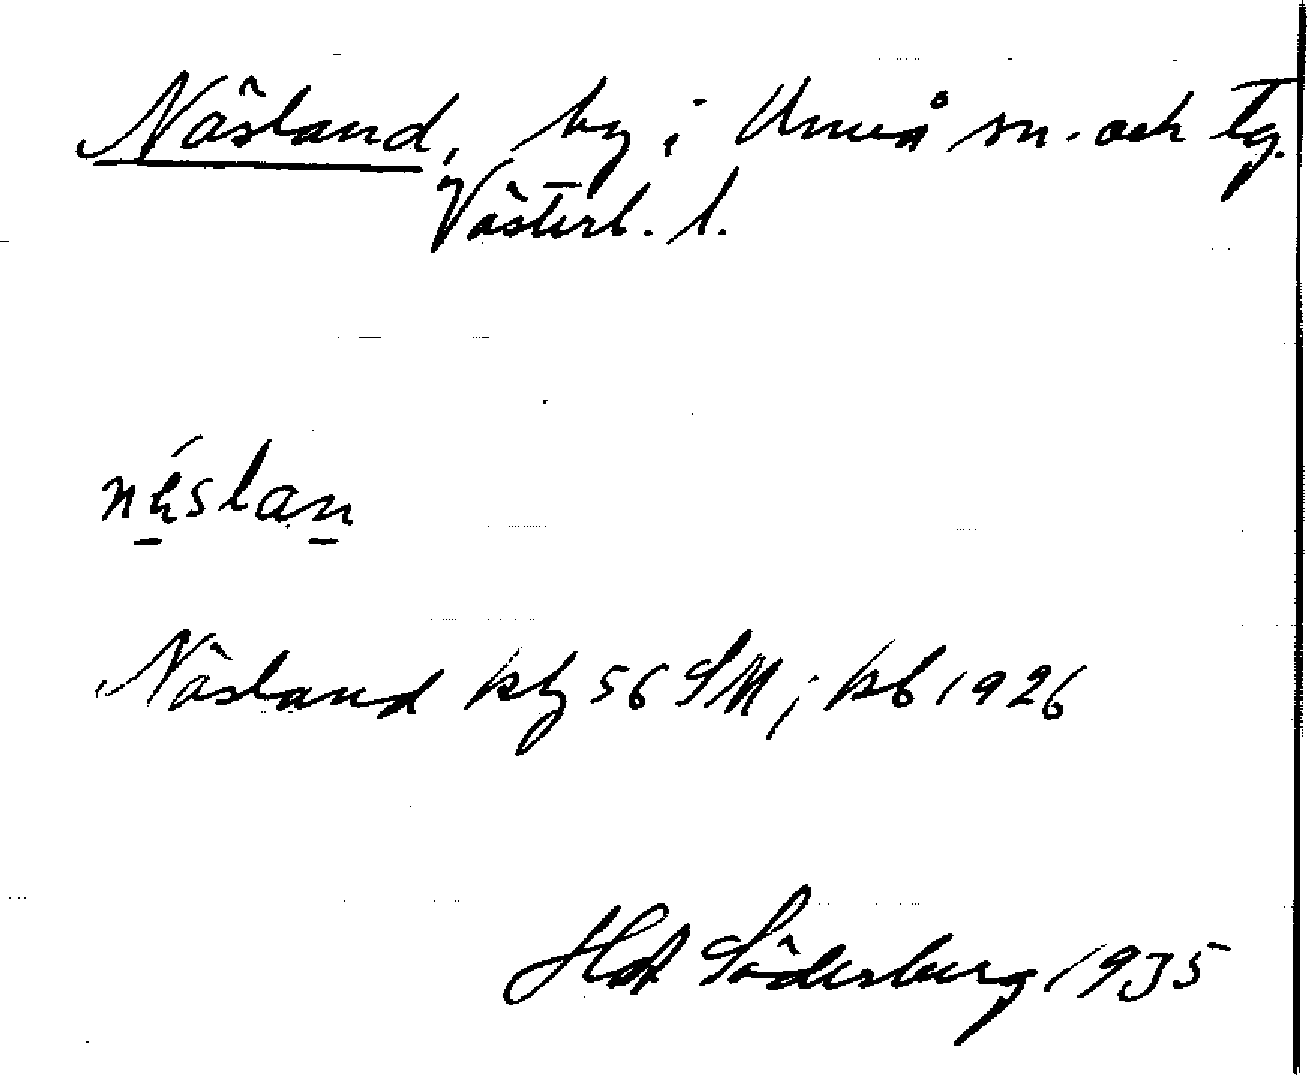 Näsland, by i Umeå sn. och tg.
Västerb. l.
näslan
Näsland kbl 56 SM; kb 1926
Hst Söderberg 1935